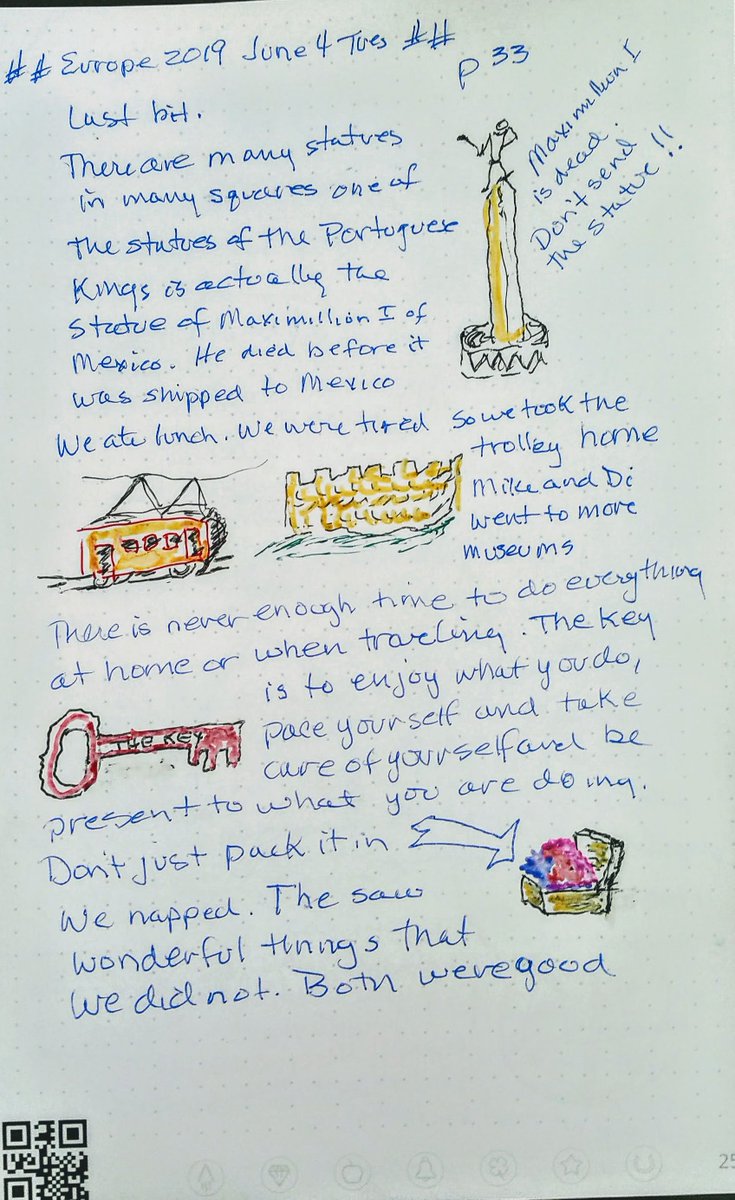 ## Europe 2019 June 4 Tues ##
p 33
Last bit.
There are many statues
in many squares one of
the statues of the Portuguese
Kings is actually the
statue of Maximillion I of
Mexico. He died before it
was shipped to Mexico
Maximillion I
is dead.
Don't send
the statue!!
We ate lunch. We were tired so we took the
trolley home
Mike and Di
went to more
museums
There is never enough time to do everything
at home or when traveling. The Key
is to enjoy what you do,
THE KEY
pace yourself and take
care of yourself and be
present to what you are doing.
Don't just pack it in
We napped. The saw
wonderful things that
We did not. Both were good
25